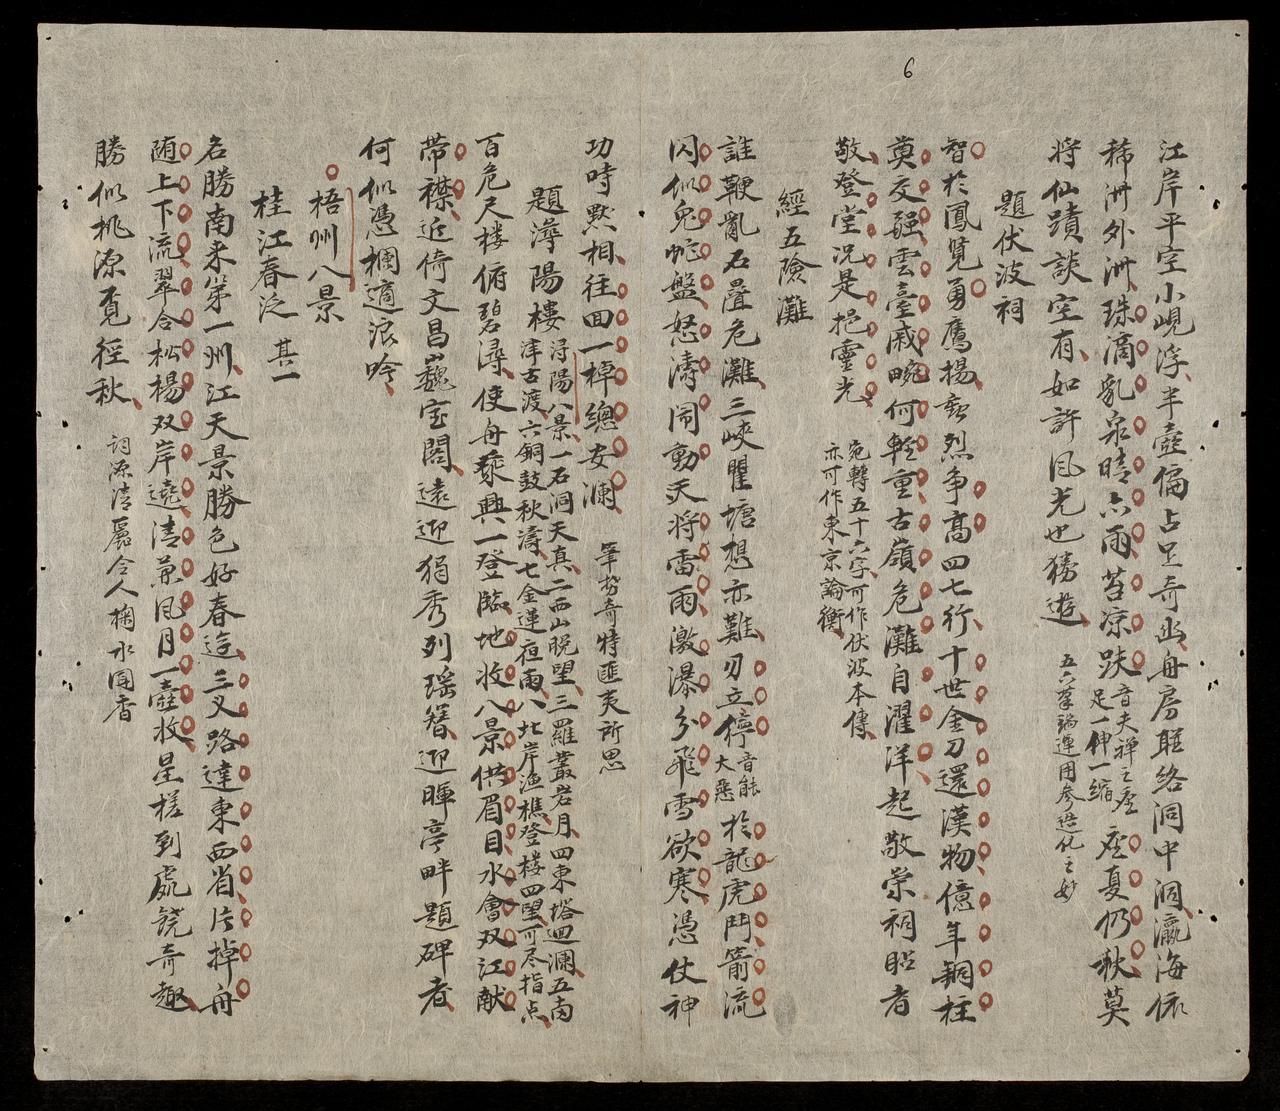 6
江岸平空小峴浮半壺偏占足奇幽舟房聯絡洞中洞瀛海依
稀洲外洲珠滴乳泉晴亦雨苔凉趺音夫禅之坐足一伸一縮坐夏仍秋莫
將仙蹟談空有如許風光也勝遊五六筆端運用參造化之妙
題伏波祠
智於鳳覽勇鷹揚烈爭高四七行十世金刀還漢物億年銅柱
奠交疆雲臺戚畹何輕重古嶺危灘自濯洋起敬崇祠昭者
敬登堂况是挹靈光宛轉五十六字可作伏波本傳亦可作東京論衡
經五險灘
誰鞭亂石疊危灘三峽瞿塘想亦難刃立停音能大惡於龍虎鬥箭流
閃似兔蛇盤怒濤闹動天將雷雨激瀑分飛雪欲寒憑仗神
功時默相往回一棹總安瀾筆勢奇特匪夷所思
題潯陽樓潯陽八景一石洞天真二西山晚望三羅叢岩月四東塔迴瀾五南津古渡六銅鼓秋濤七金蓮夜雨八北岸漁樵登楼四望可尽指点
百危尺楼俯碧潯使舟乘興一登臨地收八景供眉目水會双江献
带襟近倚文昌巍宝閣遠迎狷秀列瑶簪迎暉亭畔題碑者
何似憑欄適浪吟
梧州八景
桂江春泛 其一
名勝南来第一州江天景勝色好春遊三叉路達東西省片掉舟
随上下流翠合松楊双岸遶清兼風月一壺收星槎到處饒奇趣
勝似桃源覔徑秋詞源清麗令人掬水聞香